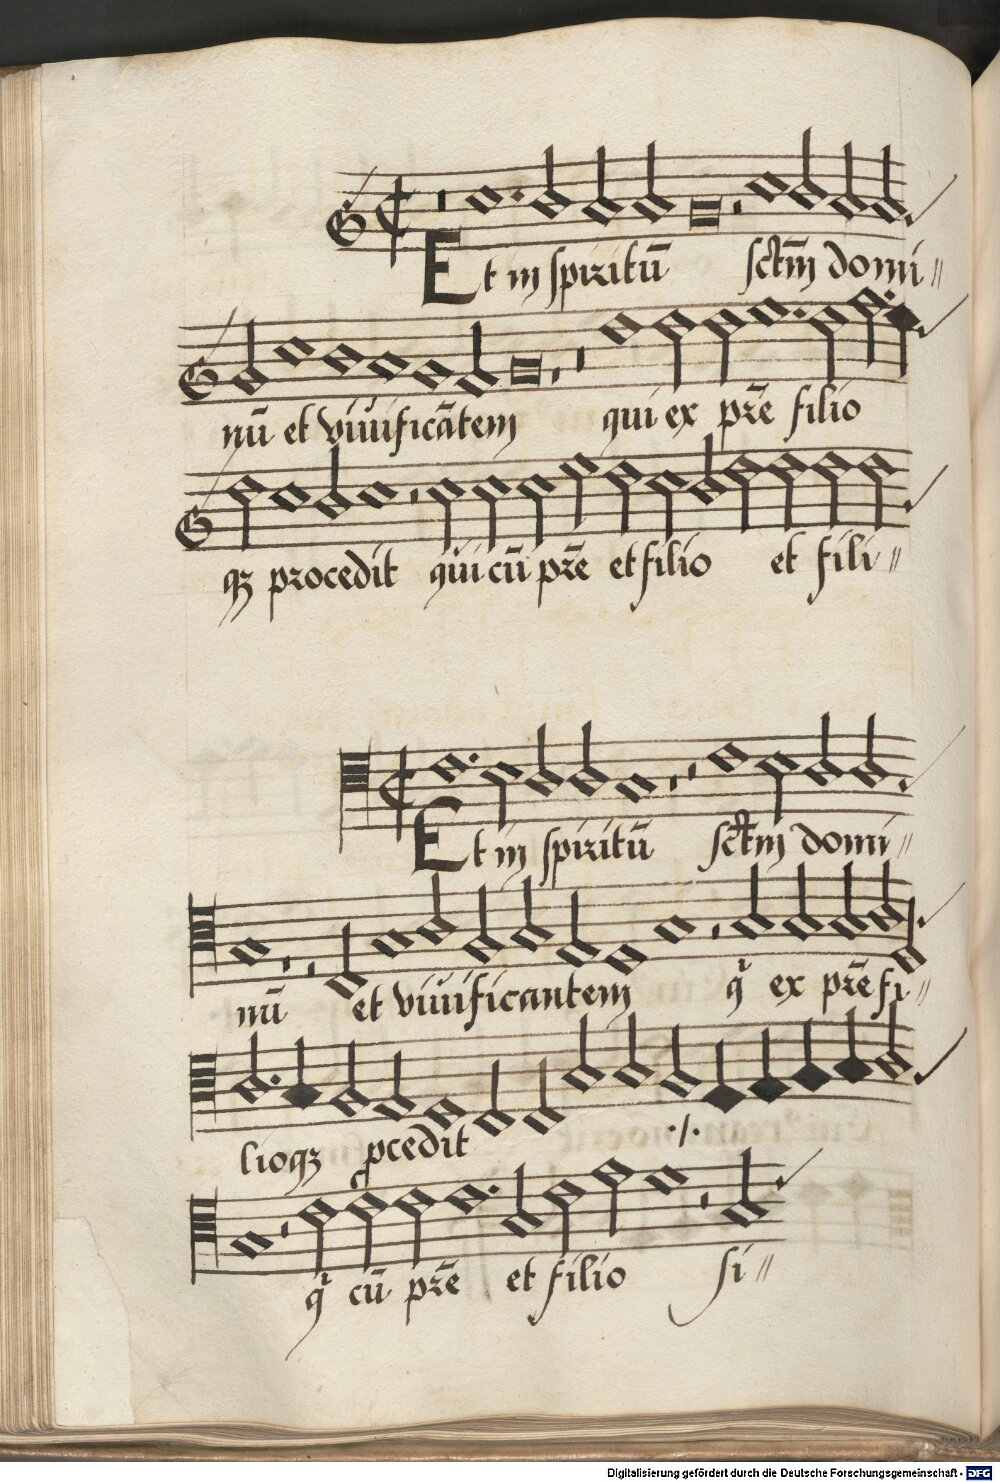 Et in spiritū sctm̄ domi//
nū et viuificātem qui ex p̄re filio
qꝫ procedit qui cū p̄re et filio et fili//
Et in spiritū sctm̄ domi//
nū et viuificantem q̇ ex p̄re fi//
lioqꝫ ꝓcedit ·/·
q̇ cū p̄re et filio fi//
Digitalisierung gefördert durch die Deutsche Forschungsgemeinschaft - DFG